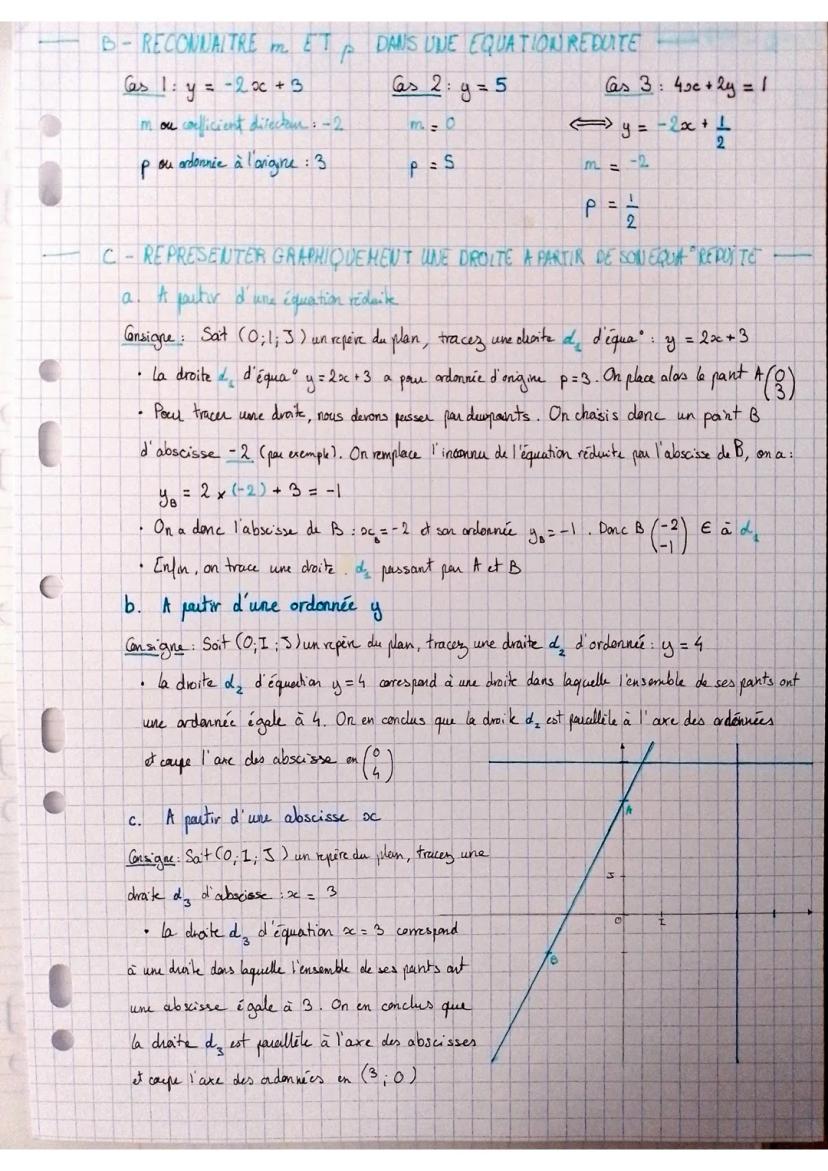 B - RECONNAITRE m ET p DANS UNE EQUATION REDUITE
Cas 1 : y = -2x + 3
Cas 2 : y = 5
Cas 3 : 4x + 2y = 1
m ou coefficient directeur : -2
m = 0
⟺ y = -2x + 1/2
p ou ordonnée à l'origine : 3
p = 5
m = -2
p = 1/2
C - REPRESENTER GRAPHIQUEMENT UNE DROITE A PARTIR DE SON EQUA° REDUITE
a. A partir d'une équation réduite
Consigne : Soit (O;I;J) un repère du plan, tracez une droite d₁ d'équa° : y = 2x + 3
• La droite d₁ d'équa° y = 2x + 3 a pour ordonnée d'origine p = 3. On place alors le point A (0 3)
• Pour tracer une droite, nous devons passer par deux points. On choisis donc un point B
d'abscisse -2 (par exemple). On remplace l'inconnu de l'équation réduite par l'abscisse de B, on a :
y_B = 2 × (-2) + 3 = -1
• On a donc l'abscisse de B : x_B = -2 et son ordonnée y_B = -1. Donc B (-2 -1) ∈ à d₁
• Enfin, on trace une droite d₁ passant par A et B
b. A partir d'une ordonnée y
Consigne : Soit (O;I;J) un repère du plan, tracez une droite d₂ d'ordonnée : y = 4
• La droite d₂ d'équation y = 4 correspond à une droite dans laquelle l'ensemble de ses points ont
une ordonnée égale à 4. On en conclus que la droite d₂ est parallèle à l'axe des ordonnées
et coupe l'axe des abscisse en (0 4)
c. A partir d'une abscisse x
Consigne : Soit (O;I;J) un repère du plan, tracez une
droite d₃ d'abscisse : x = 3
• La droite d₃ d'équation x = 3 correspond
à une droite dans laquelle l'ensemble de ses points ont
une abscisse égale à 3. On en conclus que
la droite d₃ est parallèle à l'axe des abscisses
et coupe l'axe des ordonnées en (3 ; 0)
A
J
O
I
B